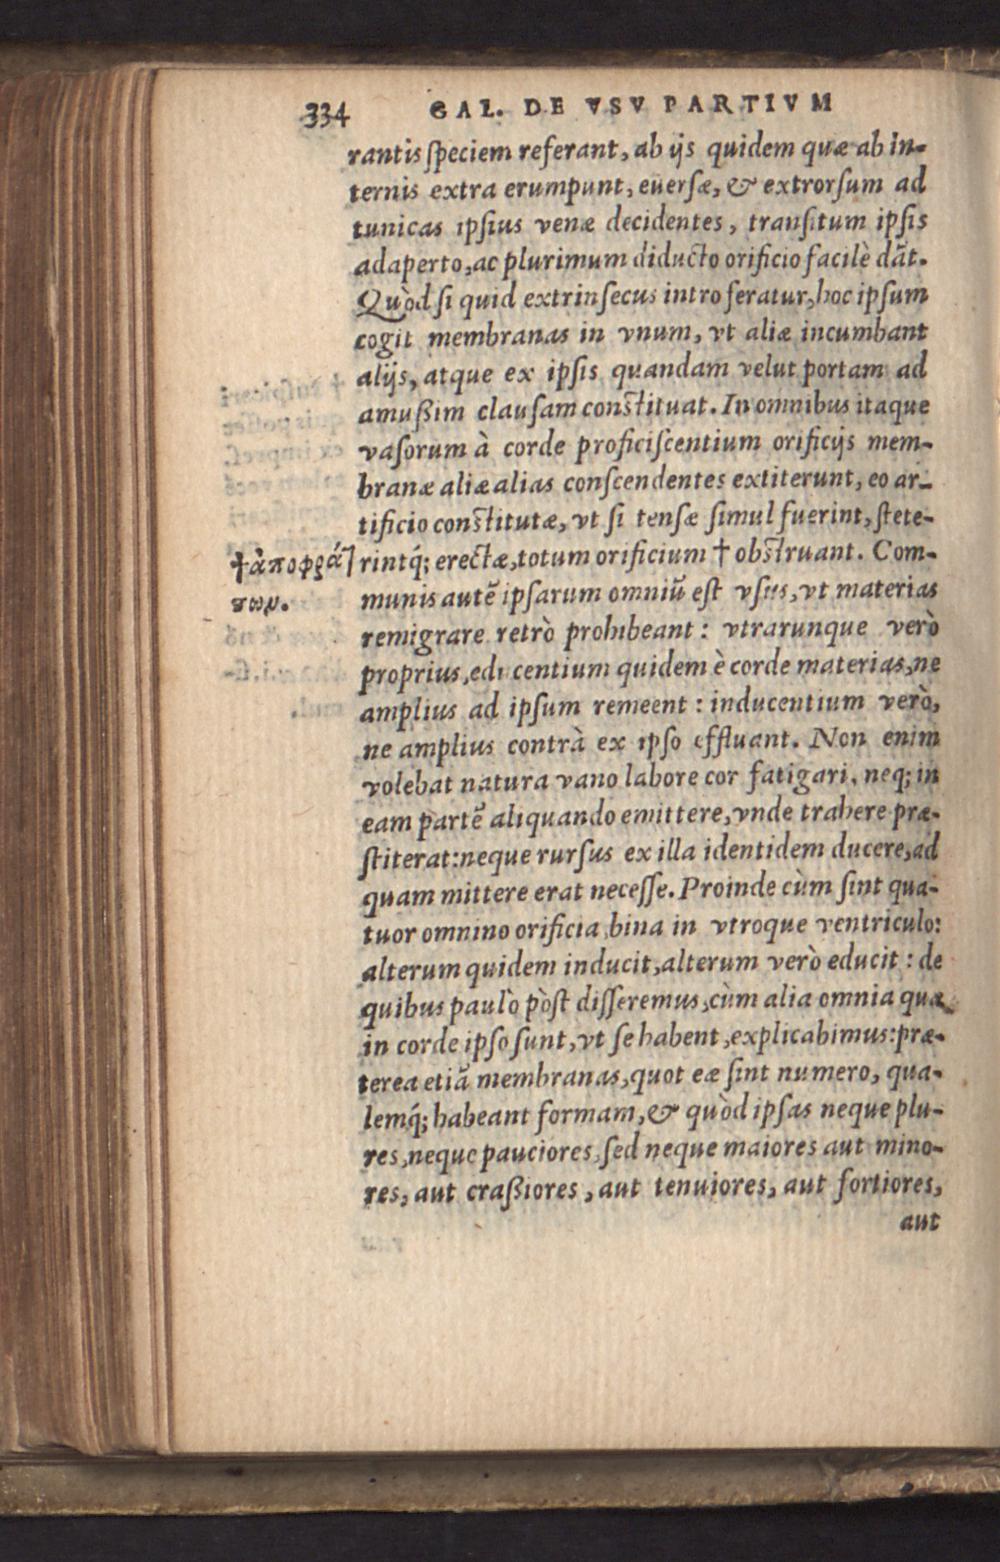 334 GAL. DE VSV PARTIVM
rantis speciem referant, ab ijs quidem quæ ab in-
ternis extra erumpunt, euersæ, & extrorsum ad
tunicas ipsius venæ decidentes, transitum ipsis
adaperto, ac plurimum diducto orificio facilè dãt.
Quòd si quid extrinsecus intro feratur, hoc ipsum
cogit membranas in vnum, vt aliæ incumbant
alijs, atque ex ipsis quandam velut portam ad
amußim clausam constituat. In omnibus itaque
vasorum à corde proficiscentium orificijs mem-
branæ aliæ alias conscendentes extiterunt, eo ar-
tificio constitutæ, vt si tensæ simul fuerint, stete-
rintq́; erectæ, totum orificium † obstruant. Com-
munis autẽ ipsarum omniũ est vsus, vt materias
remigrare retrò prohibeant : vtrarunque verò
proprius, educentium quidem è corde materias, ne
amplius ad ipsum remeent : inducentium verò,
ne amplius contrà ex ipso effluant. Non enim
volebat natura vano labore cor fatigari, neq; in
eam partẽ aliquando emittere, vnde trahere præ-
stiterat: neque rursus ex illa identidem ducere, ad
quam mittere erat necesse. Proinde cùm sint qua-
tuor omnino orificia, bina in vtroque ventriculo:
alterum quidem inducit, alterum verò educit : de
quibus paulò pòst disseremus, cùm alia omnia quæ
in corde ipso sunt, vt se habent, explicabimus: præ-
terea etiã membranas, quot eæ sint numero, qua-
lemq́; habeant formam, & quòd ipsas neque plu-
res, neque pauciores, sed neque maiores aut mino-
res, aut craßiores, aut tenuiores, aut fortiores,
aut
†ἀποφρά]
τωμ.